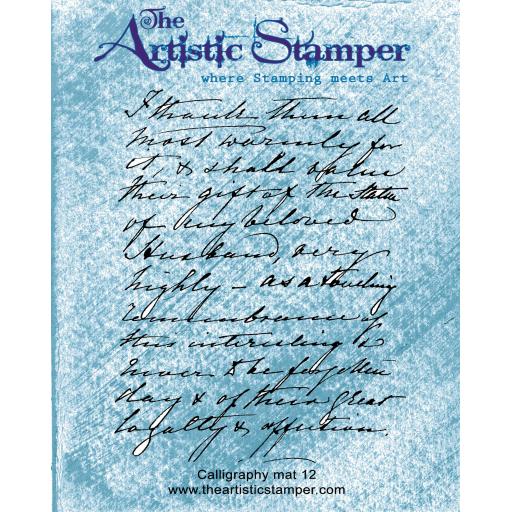 The
Artistic Stamper
where Stamping meets Art
I thank them all
most warmly for
it, & shall value
their gift of the Statue
of my beloved
Husband, very
highly – as a touching
remembrance of
this interesting &
never to be forgotten
day & of their great
loyalty & affection.
Calligraphy mat 12
www.theartisticstamper.com